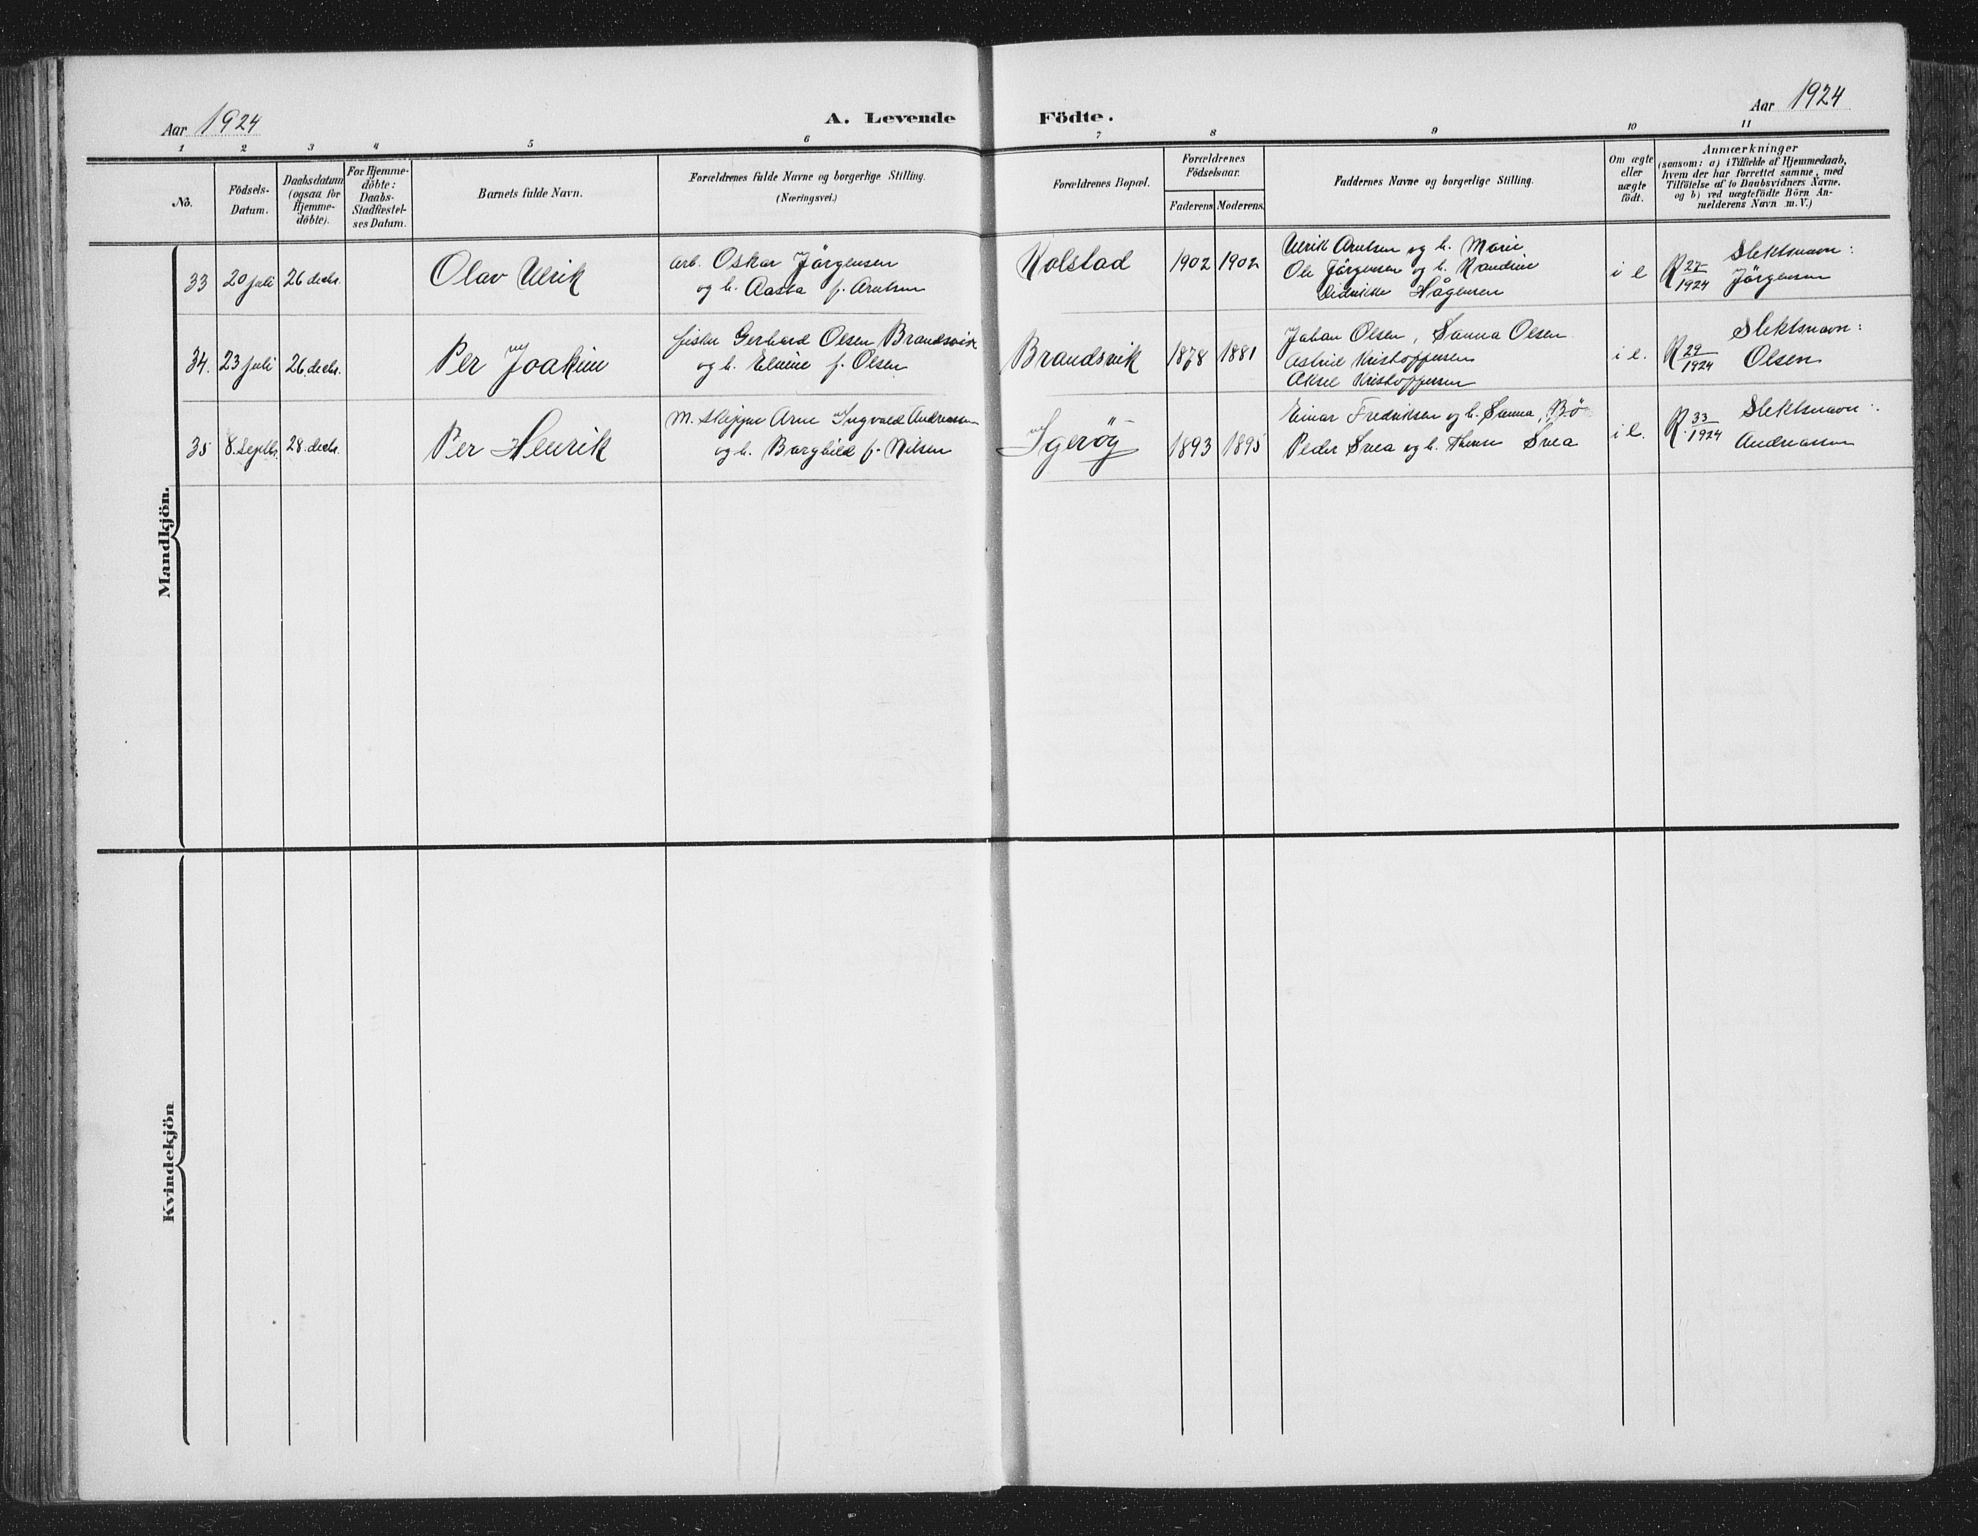 Aar 1924
A. Levende Födte.
Aar 1924
1 2 3 4 5 6 7 8 9 10 11
No.
Födsels-
Datum.
Daabsdatum
(ogsaa for
Hjemme-
döbte).
For Hjemme-
döbte:
Daabs-
Stadfæstel-
ses Datum.
Barnets fulde Navn.
Forældrenes fulde Navne og borgerlige Stilling.
(Næringsvei.)
Forældrenes Bopæl.
Forældrenes
Födselsaar.
Faderens Moderens
Faddernes Navne og borgerlige Stilling.
Om ægte
eller
uægte
födt.
Anmærkninger
(saasom: a) i Tilfælde af Hjemmedaab,
hvem der har forrettet samme, med
Tilföielse af to Daabsvidners Navne.
og b) ved uægtefödte Börn An-
melderens Navn m. V.)
Mandkjön.
33 20 juli 26 decbr. Olav Ulrik
arb. Oskar Jörgensen
og h. Aasta f. Arntsen
Kolstad 1902 1902
Ulrik Arntsen og h. Marie
Ole Jörgensen og h. Randine
Hågensen
i e R 27/1924
Slektsnavn:
Jörgensen
34. 23 juli 26 decbr. Per Joakim
fisker Gerhard Olsen Brandsvik
og h. Elmine f. Olsen
Brandsvik 1878 1881
Johan Olsen, Sanna Olsen
Astrid Kristoffersen
Aksel Kristoffersen
i e. R 29/1924
Slektsnavn:
Olsen
35 8. Septbr. 28 decbr. Per Henrik
M. skipper Arne Ingvald Andreassen
og h. Borghild f. Nilsen
Igeröy 1893 1895
Einar Fredriksen og h. Sanna, Bö
Peder Svea og h. Svea
i e. R. 33/1924
Slektsnavn:
Andreassen
Kvindekjön